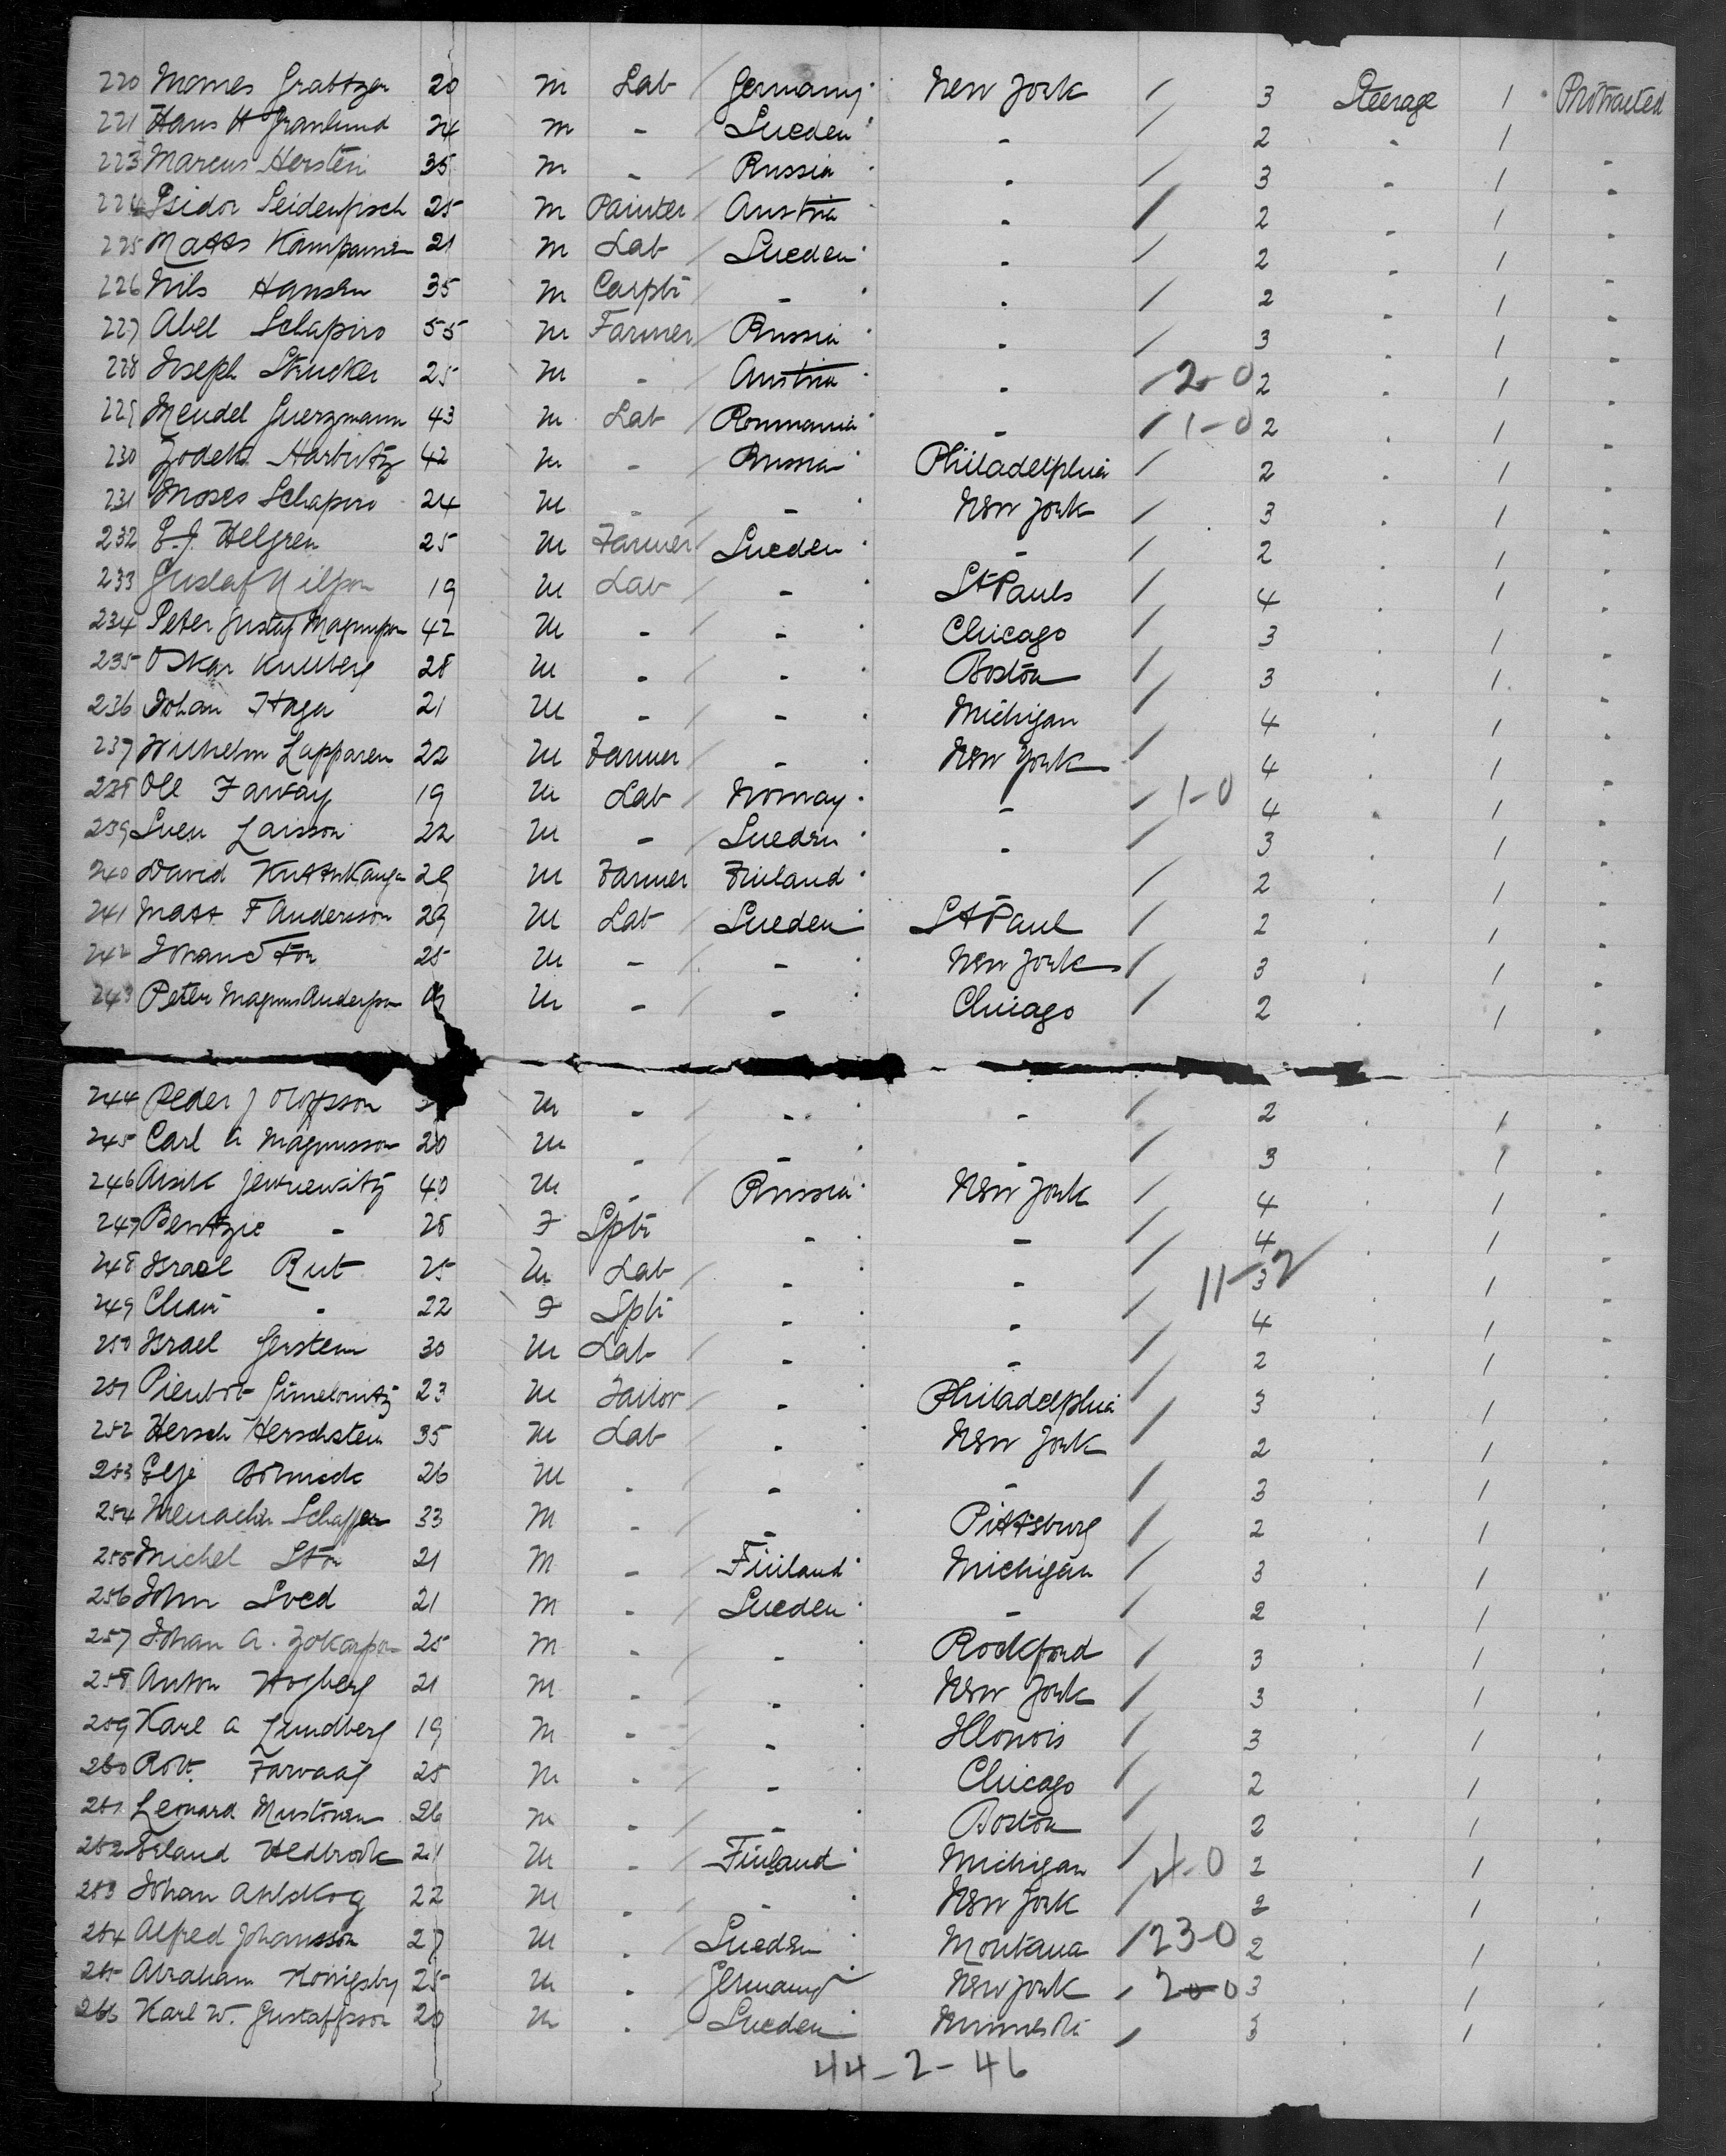 220 Mones Grabtzen 20 m Lab / Germany New York / 3 Steerage 1 Protracted
221 Hans H Granlund 24 m - / Sueden - / 2 - 1
223 Marcus Herstein 35 m - / Russia - / 3 - 1 -
224 Isidor Seidenfisch 25 m Painter / Austria - / 2 - 1 -
225 Matts 21 m Lab / Sueden - / 2 - 1 -
226 Nils Hansen 35 m Carptr - - / 2 - 1 -
227 Abel Schapiro 55 m Farmer / Russia - / 3 - 1 -
228 Joseph Strucker 25 m - / Austria - / 2-0 2 - 1 -
229 Mendel Guerzmann 43 m Lab / Roumania - / 1-0 2 - 1 -
230 Zodek Harbutz 42 m - / Russia Philadelphia / 2 - 1 -
231 Moses Schapiro 24 m - / - New York / 3 - 1 -
232 E. J. Helgren 25 m Farmer / Sueden - / 2 - 1 -
233 Gustaf Nilsson 19 m Lab / - St Pauls / 4 - 1 -
234 Peter Gustaf Magnusson 42 m - / - Chicago / 3 - 1 -
235 Oskar Kullberg 28 m - / - Boston / 3 - 1 -
236 Johan Haga 21 m - / - Michigan / 4 - 1 -
237 Wilhelm Lapparen 22 m Farmer / - New York / 4 - 1 -
238 Ole Farvaag 19 m Lab / Norway - / 1-0 4 - 1 -
239 Sven Larsson 22 m - / Sueden - / 3 - 1 -
240 David 29 m Farmer Finland / 2 - 1 -
241 Matt F Andersson 29 m Lab / Sueden St Paul / 2 - 1 -
242 Johan 25 m - / - New York / 3 - 1 -
243 Peter Magnus Andersson m - / - Chicago / 2 - 1 -
244 Peder J Oloffsson m - / - - / 2 - 1 -
245 Carl A Magnusson 20 m - / - - / 3 - 1 -
246 Aisik 40 m - / Russia New York / 4 1 -
247 Bentzie - 28 F Sptr - - / 4 - 1 -
248 Israel Rut 25 m Lab / - - / 11-2 3 - 1 -
249 Chain - 22 F Sptr - - / 4 - 1 -
250 Israel Gerstein 30 m Lab / - - / 2 - 1 -
251 Gimelowitz 23 m Tailor / - Philadelphia / 3 - 1 -
252 Hersch Herschstein 35 m Lab / - New York / 2 - 1 -
253 Elje 26 m - / - - / 3 - 1 -
254 Menachin Schaffer 33 M - / - Pittsburg / 2 - 1 -
255 Michel Stor 21 M - / Finland Michigan / 3 - 1 -
256 John Sved 21 m - / Sueden - / 2 - 1 -
257 Johan A. 25 m - / - Rockford / 3 - 1 -
258 Anton Hogberg 21 m - / - New York / 3 - 1 -
259 Karl A Lundberg 19 m - / - Illonois / 3 - 1 -
260 Robt. Farvaag 25 m - / - Chicago / 2 - 1 -
261 Leonard Mustonen 26 m - / - Boston / 2 - 1 -
262 Erland Hedbrook 21 m - / Finland Michigan / 4-0 2 - 1 -
263 Johan Ahlskog 22 m - / - New York / 2 - 1 -
264 Alfred Johansson 27 m - / Sueden Montana / 23-0 2 - 1 -
265 Abraham Konigsby 25 m - / Germany New York / 2-0 3 - 1 -
266 Karl W. Gustaffsson 20 m - / Sueden / 3 - 1 -
44-2-46